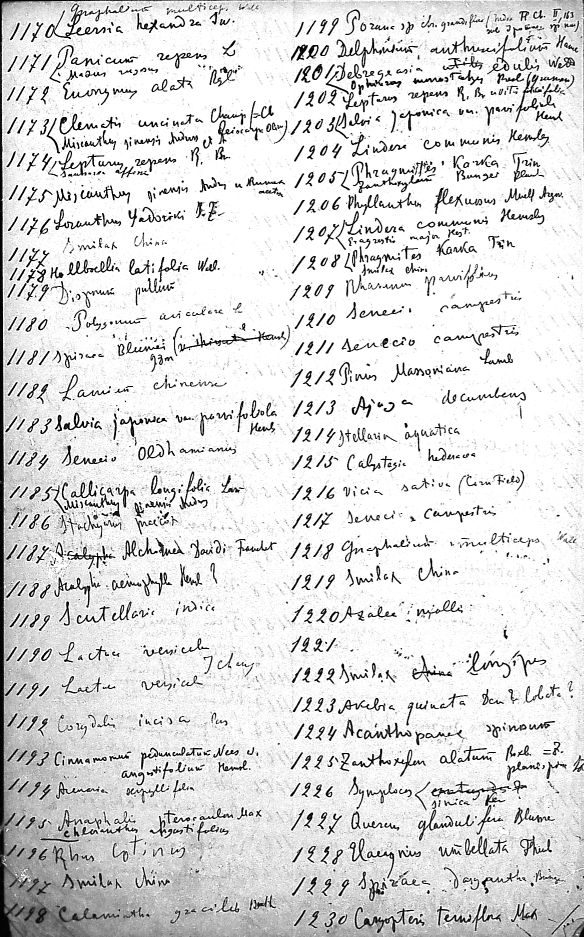 Graphalium multiceps Wall
1170 Leersia hexandra Sw.
1171 Panicum repens L
1172 Euonymus alata
1173 Clematis uncinata Champ
Miscanthus sinensis Anders
1174 Lepturus repens R. Br
1175 Miscanthus sinensis Anders
1176 Loranthus Yadoriki S.Z.
1177 Smilax China
1178 Hollboellia latifolia Wall.
1179 Disporum pullum
1180 Polygonum aviculare L
1181 Spiraea Blumei
1182 Lamium chinense
1183 Salvia japonica var parvifoliola
Hemsl
1184 Senecio Oldhamianus
1185 Callicarpa longifolia Lam
Miscanthus sinensis Anders
1186 Stachyurus praecox
1187 Acalypha Alchornea Davidi Franchet
1188 Acalypha Hemsl ?
1189 Scutellaria indica
1190 Lactuca versicolor
1191 Lactuca versicol
1192 Corydalis incisa Pers
1193 Cinnamomum pedunculatum Nees v.
angustifolium Hemsl.
1194 Arenaria serpyllifolia
1195 Anaphalis pterocaulon Max
Chloranthus angustifolius
1196 Rhus Cotinus
1197 Smilax China
1198 Calamintha gracilis Benth
1199 Porana sp
1200 Delphinium anthriscifolium Hance
1201 Debregeasia edulis Wedd
1202 Lepturus repens R. Br
1203 Salvia japonica var. parvifoliola
Hemsl
1204 Lindera communis Hemsley
1205 Phragmites Karka Trin
Zanthoxylum Bungei Planch
1206 Phyllanthus flexuosus Muell Arg.
1207 Lindera communis Hemsley
Eragrostis major Host.
1208 Phragmites Karka Trin
Smilax China
1209 Rhamnus parvifolius
1210 Senecio campestris
1211 Senecio campestris
1212 Pinus Massoniana Lamb
1213 Ajuga decumbens
1214 Stellaria aquatica
1215 Calystegia hederacea
1216 Vicia sativa (Corn Field)
1217 Senecio campestris
1218 Gnaphalium multiceps Wall
1219 Smilax China
1220 Azalea mollis
1221
1222 Smilax China longipes
1223 Akebia quinata Dcn ? lobata ?
1224 Acanthopanax spinosum
1225 Zanthoxylum alatum Roxb = Z.
planispinum
1226 Symplocos
sinica Ker
1227 Quercus glandulifera Blume
1228 Elaeagnus umbellata Thub
1229 Spiraea dasyantha Bunge
1230 Caryopteris terniflora Max